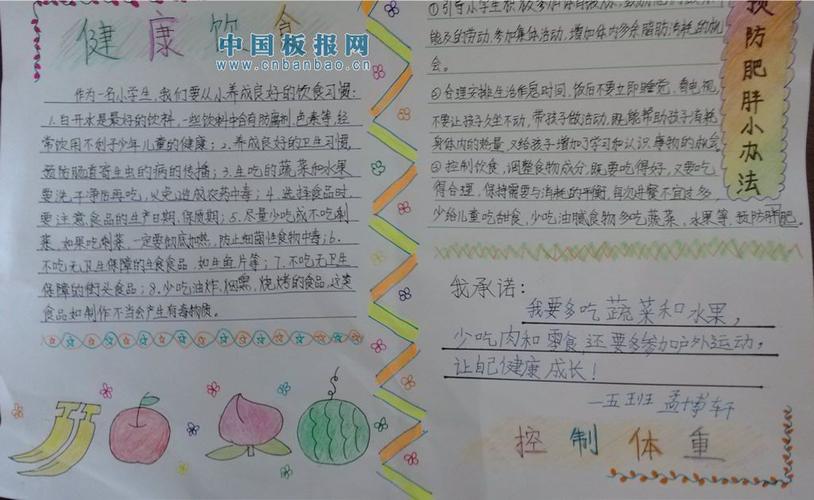 健康饮食
中国板报网
www.cnbanbao.cn
作为一名小学生,我们要从小养成良好的饮食习惯:
1.白开水是最好的饮料,一些饮料中含有防腐剂,色素等,经
常饮用不利于少年儿童的健康;2.养成良好的卫生习惯,
预防肠道寄生虫的病的传播;3.生吃的蔬菜和水果
要洗干净后再吃,以免造成农药中毒;4.选择食品时,
要注意食品的生产日期,保质期;5.尽量少吃或不吃剩
菜,如果吃剩菜,一定要彻底加热,防止细菌性食物中毒;6.
不吃无卫生保障的生食食品,如生鱼片等;7.不吃无卫生
保障的街头食品;8.少吃油炸,烟熏,烧烤的食品,这类
食品如制作不当会产生有毒物质。
预防肥胖小办法
①引导小学生积极参加体育
能及的劳动,参加集体活动,增加体内多余脂肪消耗的机
会。
②合理安排生活作息时间,饭后不要立即睡觉,看电视,
不要让孩子久坐不动,带孩子做活动,既能帮助孩子消耗
身体内的热量,又给孩子增加了学习和认识事物的机会。
③控制饮食,调整食物成分,既要吃得好,又要吃
得合理,保持需要与消耗的平衡,每次进餐不宜过多,
少给儿童吃甜食,少吃油腻食物多吃蔬菜,水果等,预防肥胖。
我承诺:
我要多吃蔬菜和水果,
少吃肉和零食,还要多参加户外运动,
让自己健康成长!
一五班 孟博轩
控制体重